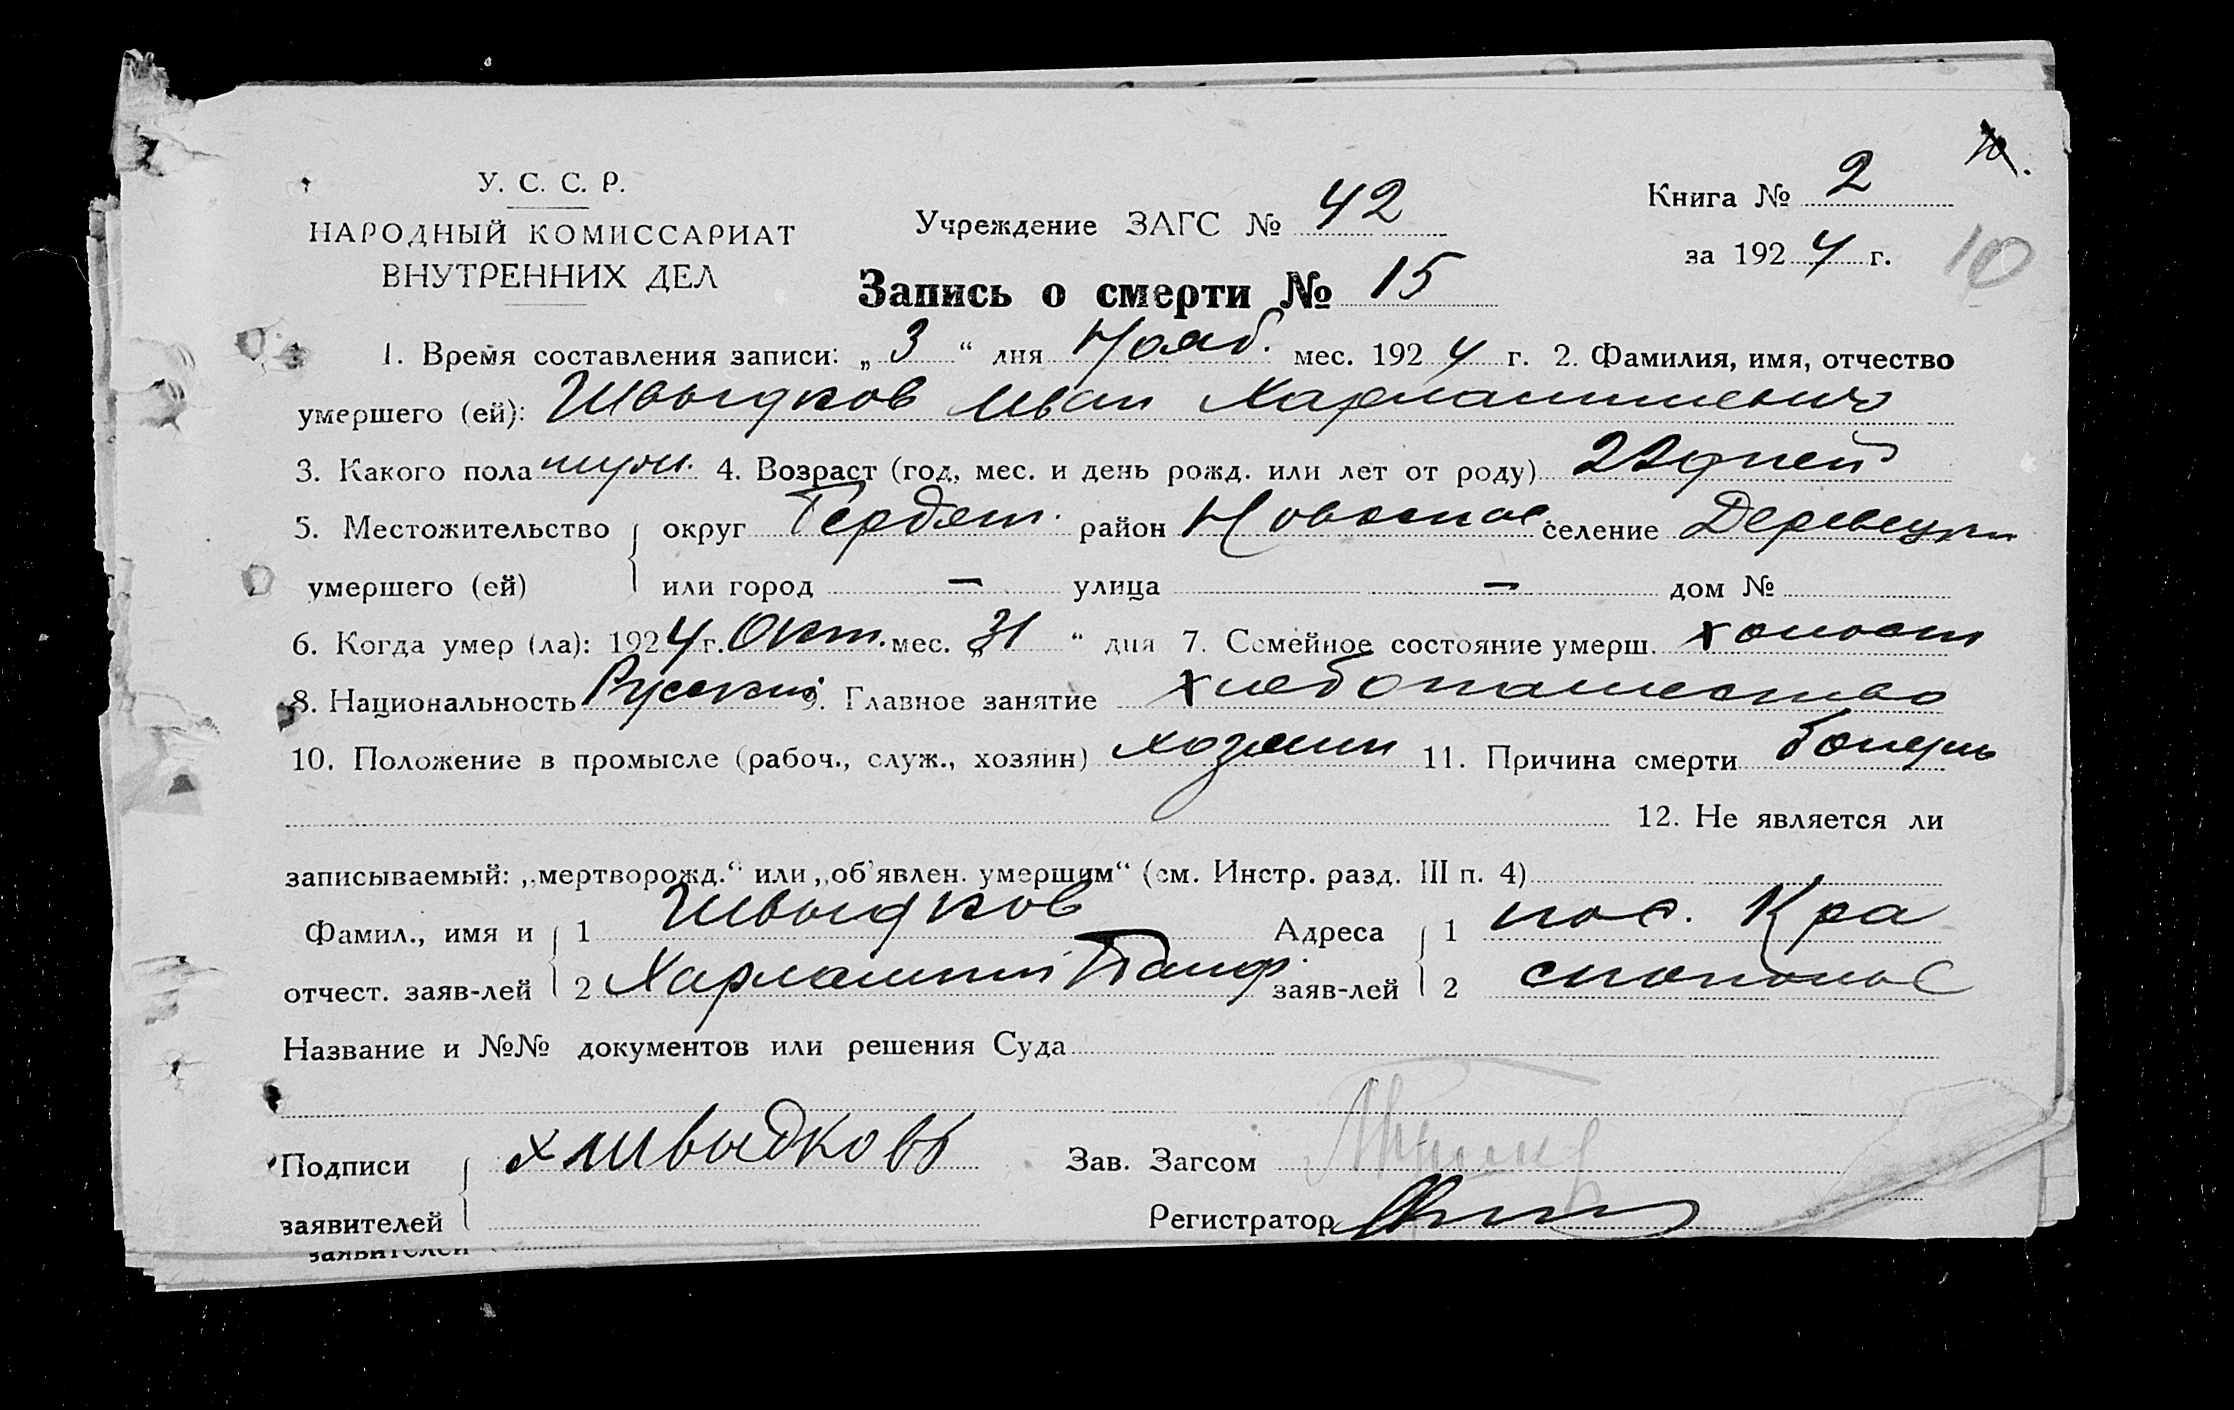 10.
У. С. С. Р.
НАРОДНЫЙ КОМИССАРИАТ
ВНУТРЕННИХ ДЕЛ
Учреждение ЗАГС № 42
Книга № 2
за 1924 г.
10
Запись о смерти № 15
1. Время составления записи: „ 3 “ дня Нояб. мес. 1924 г. 2. Фамилия, имя, отчество
умершего (ей): Швыдков Иван Харлампиевич
3. Какого пола муж. 4. Возраст (год, мес. и день рожд. или лет от роду) 22 дней
5. Местожительство округ Бердян. район Новоспас. селение Деревецки
умершего (ей) или город — улица — дом №
6. Когда умер (ла): 1924 г. Окт. мес. „ 31 “ дня 7. Семейное состояние умерш. холост
8. Национальность Русский 9. Главное занятие хлебопашество
10. Положение в промысле (рабоч., служ., хозяин) хозяин 11. Причина смерти
12. Не является ли
записываемый: „мертворожд.“ или „об'явлен. умершим“ (см. Инстр. разд. III п. 4)
Фамил., имя и 1 Швыдков Адреса 1 пос. Кра
отчест. заяв-лей 2 Харлампий Панф. заяв-лей 2
Название и №№ документов или решения Суда
Подписи х Швыдковъ Зав. Загсом
заявителей Регистратор
заявителей